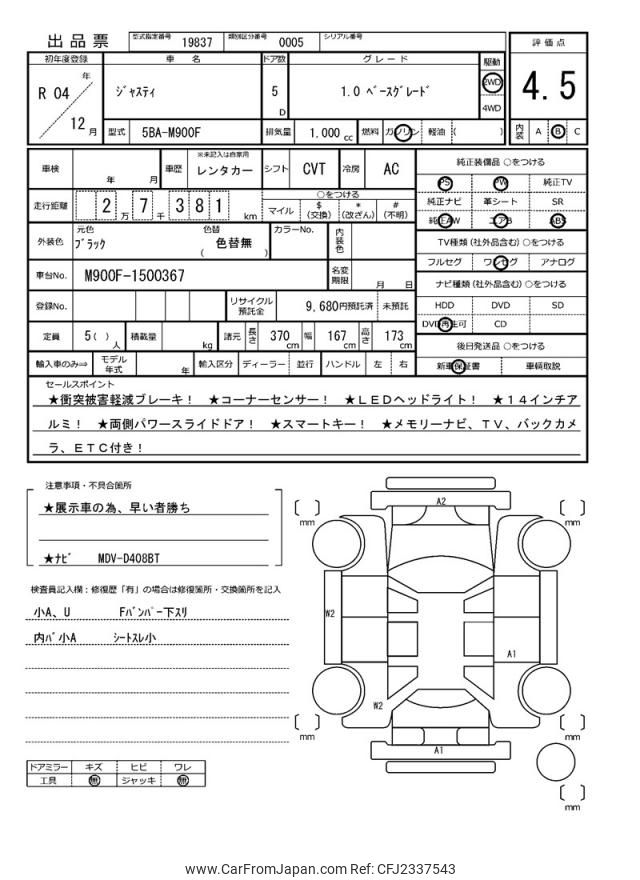 出品票
型式指定番号 19837 類別区分番号 0005 シリアル番号
初年度登録 車名 ドア数 グレード 駆動 評価点
R 04 年 12 月
ジャスティ
5 D
1.0 ベースグレード
2WD
4WD
4.5
型式 5BA-M900F 排気量 1.000 cc 燃料 ガソリン 軽油 ( )
内装 A B C
車検 年 月 車歴 ※未記入は自家用 レンタカー シフト CVT 冷房 AC
走行距離 2万 7千 381 km
○をつける
マイル $(交換) *(改ざん) #(不明)
外装色 元色 ブラック 色替 ( 色替無 ) カラーNo. 内装色
車台No. M900F-1500367 名変期限 月 日
登録No. リサイクル預託金 9,680円預託済 未預託
定員 5( )人 積載量 kg 諸元 長さ 370 cm 幅 167 cm 高さ 173 cm
輸入車のみ⇒ モデル年式 年 輸入区分 ディーラー 並行 ハンドル 左 右
純正装備品 ○をつける
PS PW 純正TV
純正ナビ 革シート SR
純正AW エアB ABS
TV種類(社外品含む)○をつける
フルセグ ワンセグ アナログ
ナビ種類(社外品含む)○をつける
HDD DVD SD
DVD再生可 CD
後日発送品 ○をつける
新車保証書 車輌取説
セールスポイント
★衝突被害軽減ブレーキ! ★コーナーセンサー! ★LEDヘッドライト! ★14インチア
ルミ! ★両側パワースライドドア! ★スマートキー! ★メモリーナビ、TV、バックカメ
ラ、ETC付き!
注意事項・不具合箇所
★展示車の為、早い者勝ち
★ナビ MDV-D408BT
検査員記入欄:修復歴「有」の場合は修復箇所・交換箇所を記入
小A、U Fバンパー下スリ
内バ小A シートスレ小
ドアミラー キズ ヒビ ワレ
工具 無 ジャッキ 無
A2
[ ] mm
[ ] mm
W2
A1
W2
[ ] mm
[ ] mm
A1
[ ] mm
www.CarFromJapan.com Ref: CFJ2337543